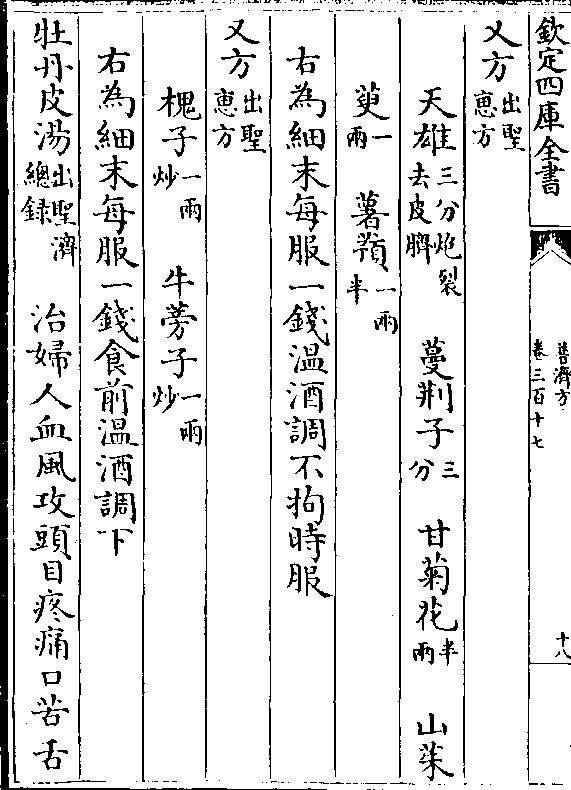 欽定四庫全書
普濟方
卷三百十七
十八
又方出聖惠方
天雄三分炮裂去皮臍 蔓荆子三分 甘菊花半兩 山茱
萸一兩 薯蕷一兩半
右為細末每服一錢温酒調不拘時服
又方出聖惠方
槐子一兩炒 牛蒡子一兩炒
右為細末每服一錢食前温酒調下
牡丹皮湯出聖濟總録 治婦人血風攻頭目疼痛口苦舌